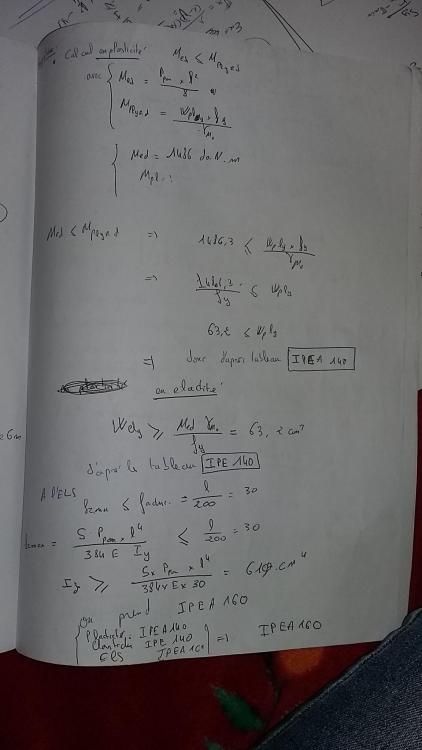 Calcul en plasticité: Med ≤ Mplyrd
avec { Med = Ppm × l² / 8
Mplyrd = Wply × fy / γM0
{ Med = 1486 daN.m
Mpl :
Med ≤ Mplyrd ⇒ 1486,3 ≤ Wply × fy / γM0
⇒ 1486,3 / fy ≤ Wply
63,2 ≤ Wply
⇒ donc d'apres tableau IPEA 140
en elasticité:
Wely ≥ Med γM0 / fy = 63,2 cm³
d'après le tableau IPE 140
A l'ELS fzmax ≤ fadm. = l/200 = 30
fzmax = 5 Ppm × l⁴ / 384 E Iy ≤ l/200 = 30
Iy ≥ 5 × Ppm × l⁴ / 384 × E × 30 = 619.cm⁴
on prend IPEA 160
{ Plasticité: IPEA 140
Elasticité IPE 140
ELS IPEA 160 } ⇒ IPEA 160